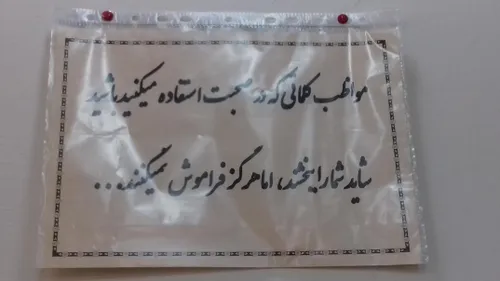 مواظب کلماتی که در صحبت استفاده میکنید باشید
شاید شما را ببخشند، اما هرگز فراموش نمیکنند...